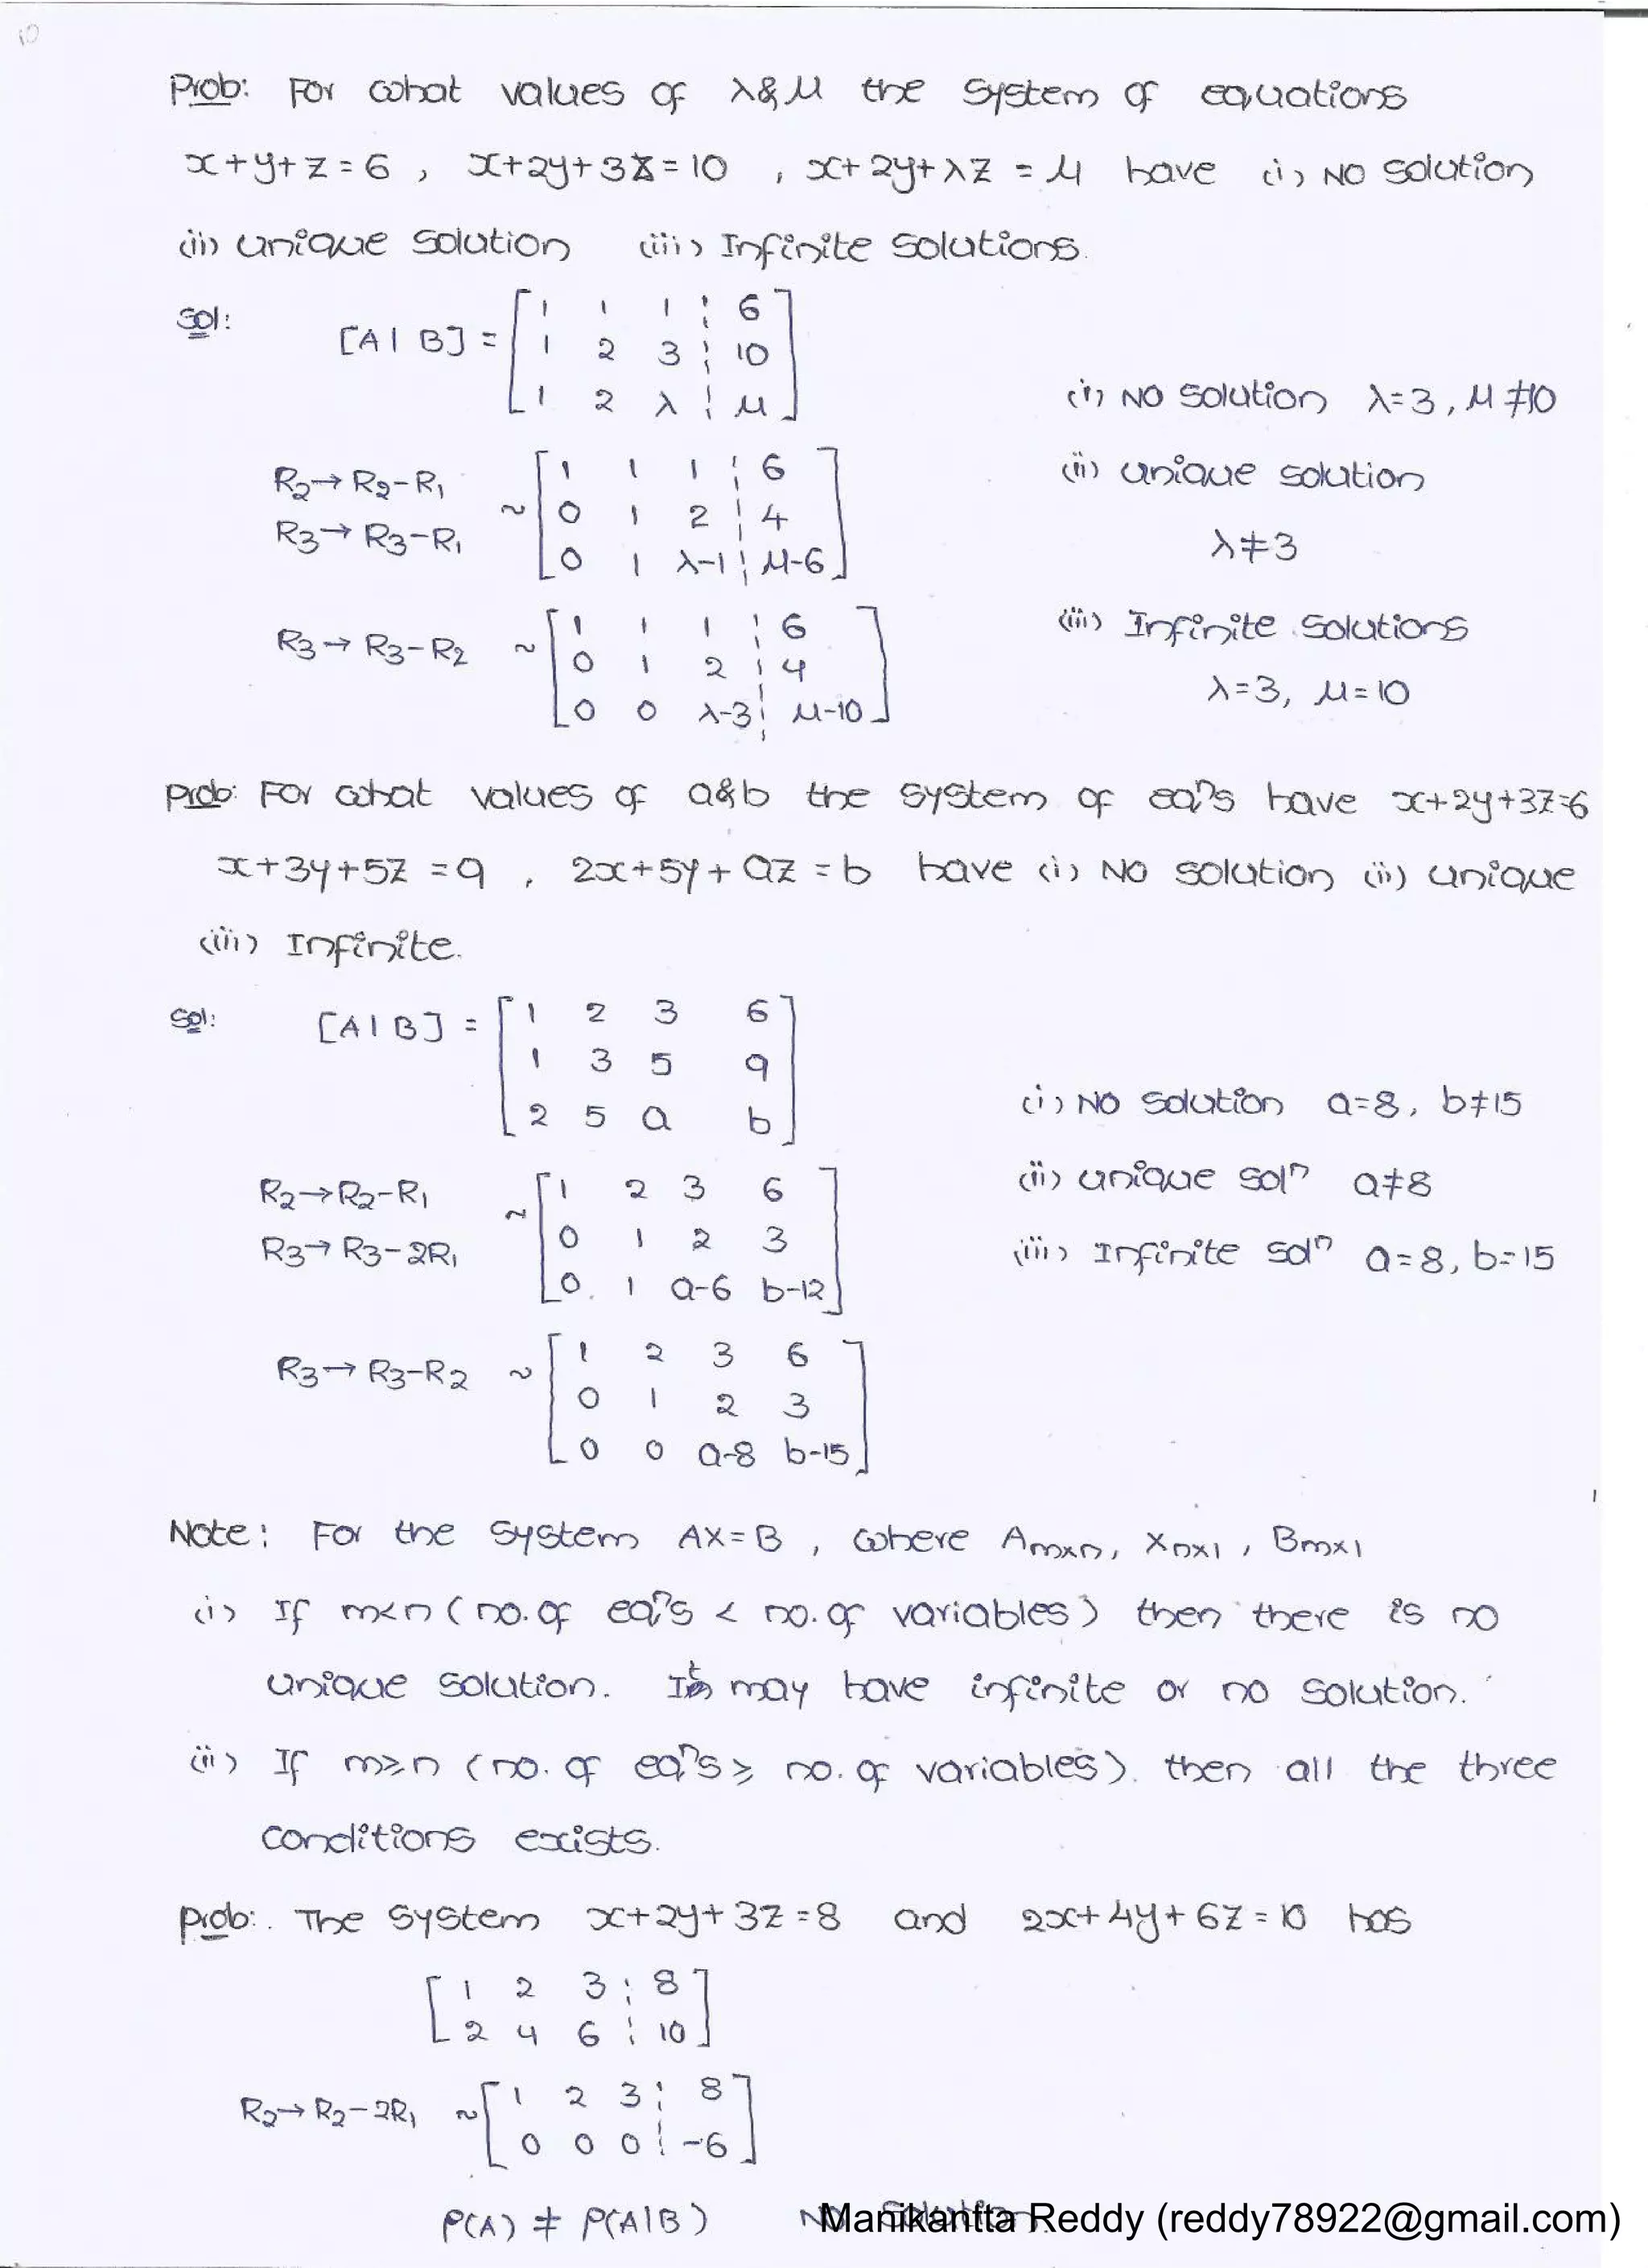 10
Prob: For what values of λ&μ the system of equations
x+y+z=6 , x+2y+3z=10 , x+2y+λz=μ have (i) No solution
(ii) unique solution (iii) Infinite solutions.
Sol: [A|B] = [1 1 1 ¦ 6
1 2 3 ¦ 10
1 2 λ ¦ μ]
(i) No solution λ=3, μ≠10
R2→R2-R1
R3→R3-R1
~ [1 1 1 ¦ 6
0 1 2 ¦ 4
0 1 λ-1 ¦ μ-6]
(ii) unique solution
λ≠3
R3→R3-R2 ~ [1 1 1 ¦ 6
0 1 2 ¦ 4
0 0 λ-3 ¦ μ-10]
(iii) Infinite solutions
λ=3, μ=10
Prob: For what values of a&b the system of eqⁿs have x+2y+3z=6
x+3y+5z=9 , 2x+5y+az=b have (i) No solution (ii) unique
(iii) Infinite.
Sol: [A|B] = [1 2 3 6
1 3 5 9
2 5 a b]
(i) No solution a=8, b≠15
(ii) unique solⁿ a≠8
(iii) Infinite solⁿ a=8, b=15
R2→R2-R1
R3→R3-2R1
~ [1 2 3 6
0 1 2 3
0 1 a-6 b-12]
R3→R3-R2 ~ [1 2 3 6
0 1 2 3
0 0 a-8 b-15]
Note: For the system AX=B , where Amxn, Xnx1, Bmx1
(i) If m<n (no.of eqⁿs < no.of variables) then there is no
unique solution. It may have infinite or no solution.
(ii) If m≥n (no. of eqⁿs ≥ no. of variables). then all the three
conditions exists.
Prob: The system x+2y+3z=8 and 2x+4y+6z=10 has
[1 2 3 ¦ 8
2 4 6 ¦ 10]
R2→R2-2R1 ~ [1 2 3 ¦ 8
0 0 0 ¦ -6]
ρ(A) ≠ ρ(A|B) No solution.
Manikantta Reddy (reddy78922@gmail.com)